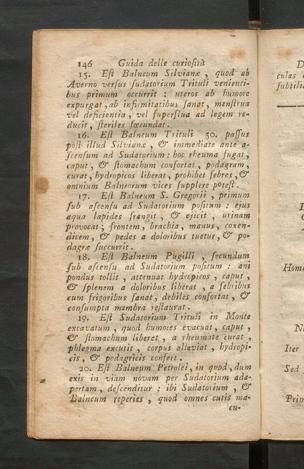 146 Guida delle curiosità
15. Est Balneum Silvianæ, quod ab
Averno versus sudatorium Trituli venienti-
bus primum occurrit: uteros ab humore
expurgat, ab infirmitatibus sanat, menstrua
vel deficientia, vel superflua ad legem re-
ducit, steriles fœcundat.
16. Est Balneum Trituli 30. passus
post illud Silvianæ, & immediate ante a-
scensum ad Sudatorium: hoc rheuma fugat,
caput, & stomachum confortat, podagram,
curat, hydropicos liberat, prohibet febres, &
omnium Balneorum vices supplere potest.
17. Est Balneum S. Gregorii, primum
sub ascensu ad Sudatorium positum: ejus
aqua lapides frangit, & ejicit, urinam
provocat; frontem, brachia, manus, coxen-
dicem, & pedes a doloribus tuetur, & po-
dagræ succurrit.
18. Est Balneum Pugilli, secundum
sub ascensu ad Sudatorium positum: ani
pondus tollit, attenuat hydropicos, caput,
& splenem a doloribus liberat, a febribus
cum frigoribus sanat, debiles confortat, &
consumpta membra restaurat.
19. Est Sudatorium Trituli in Monte
excavatum, quod humores evacuat, caput,
& stomachum liberat, a rheumate curat,
phlegma excutit, corpus alleviat, hydropi-
cis, & podagricis confert.
20. Est Balneum Petrolei, in quod, dum
exis in viam novam per Sudatorium ada-
pertam, descenditur: ibi Sudatorium, &
Balneum reperies, quod omnes cutis ma-
cu-
D
culas
subtili
Homo
N
Iter
Sed
Prim